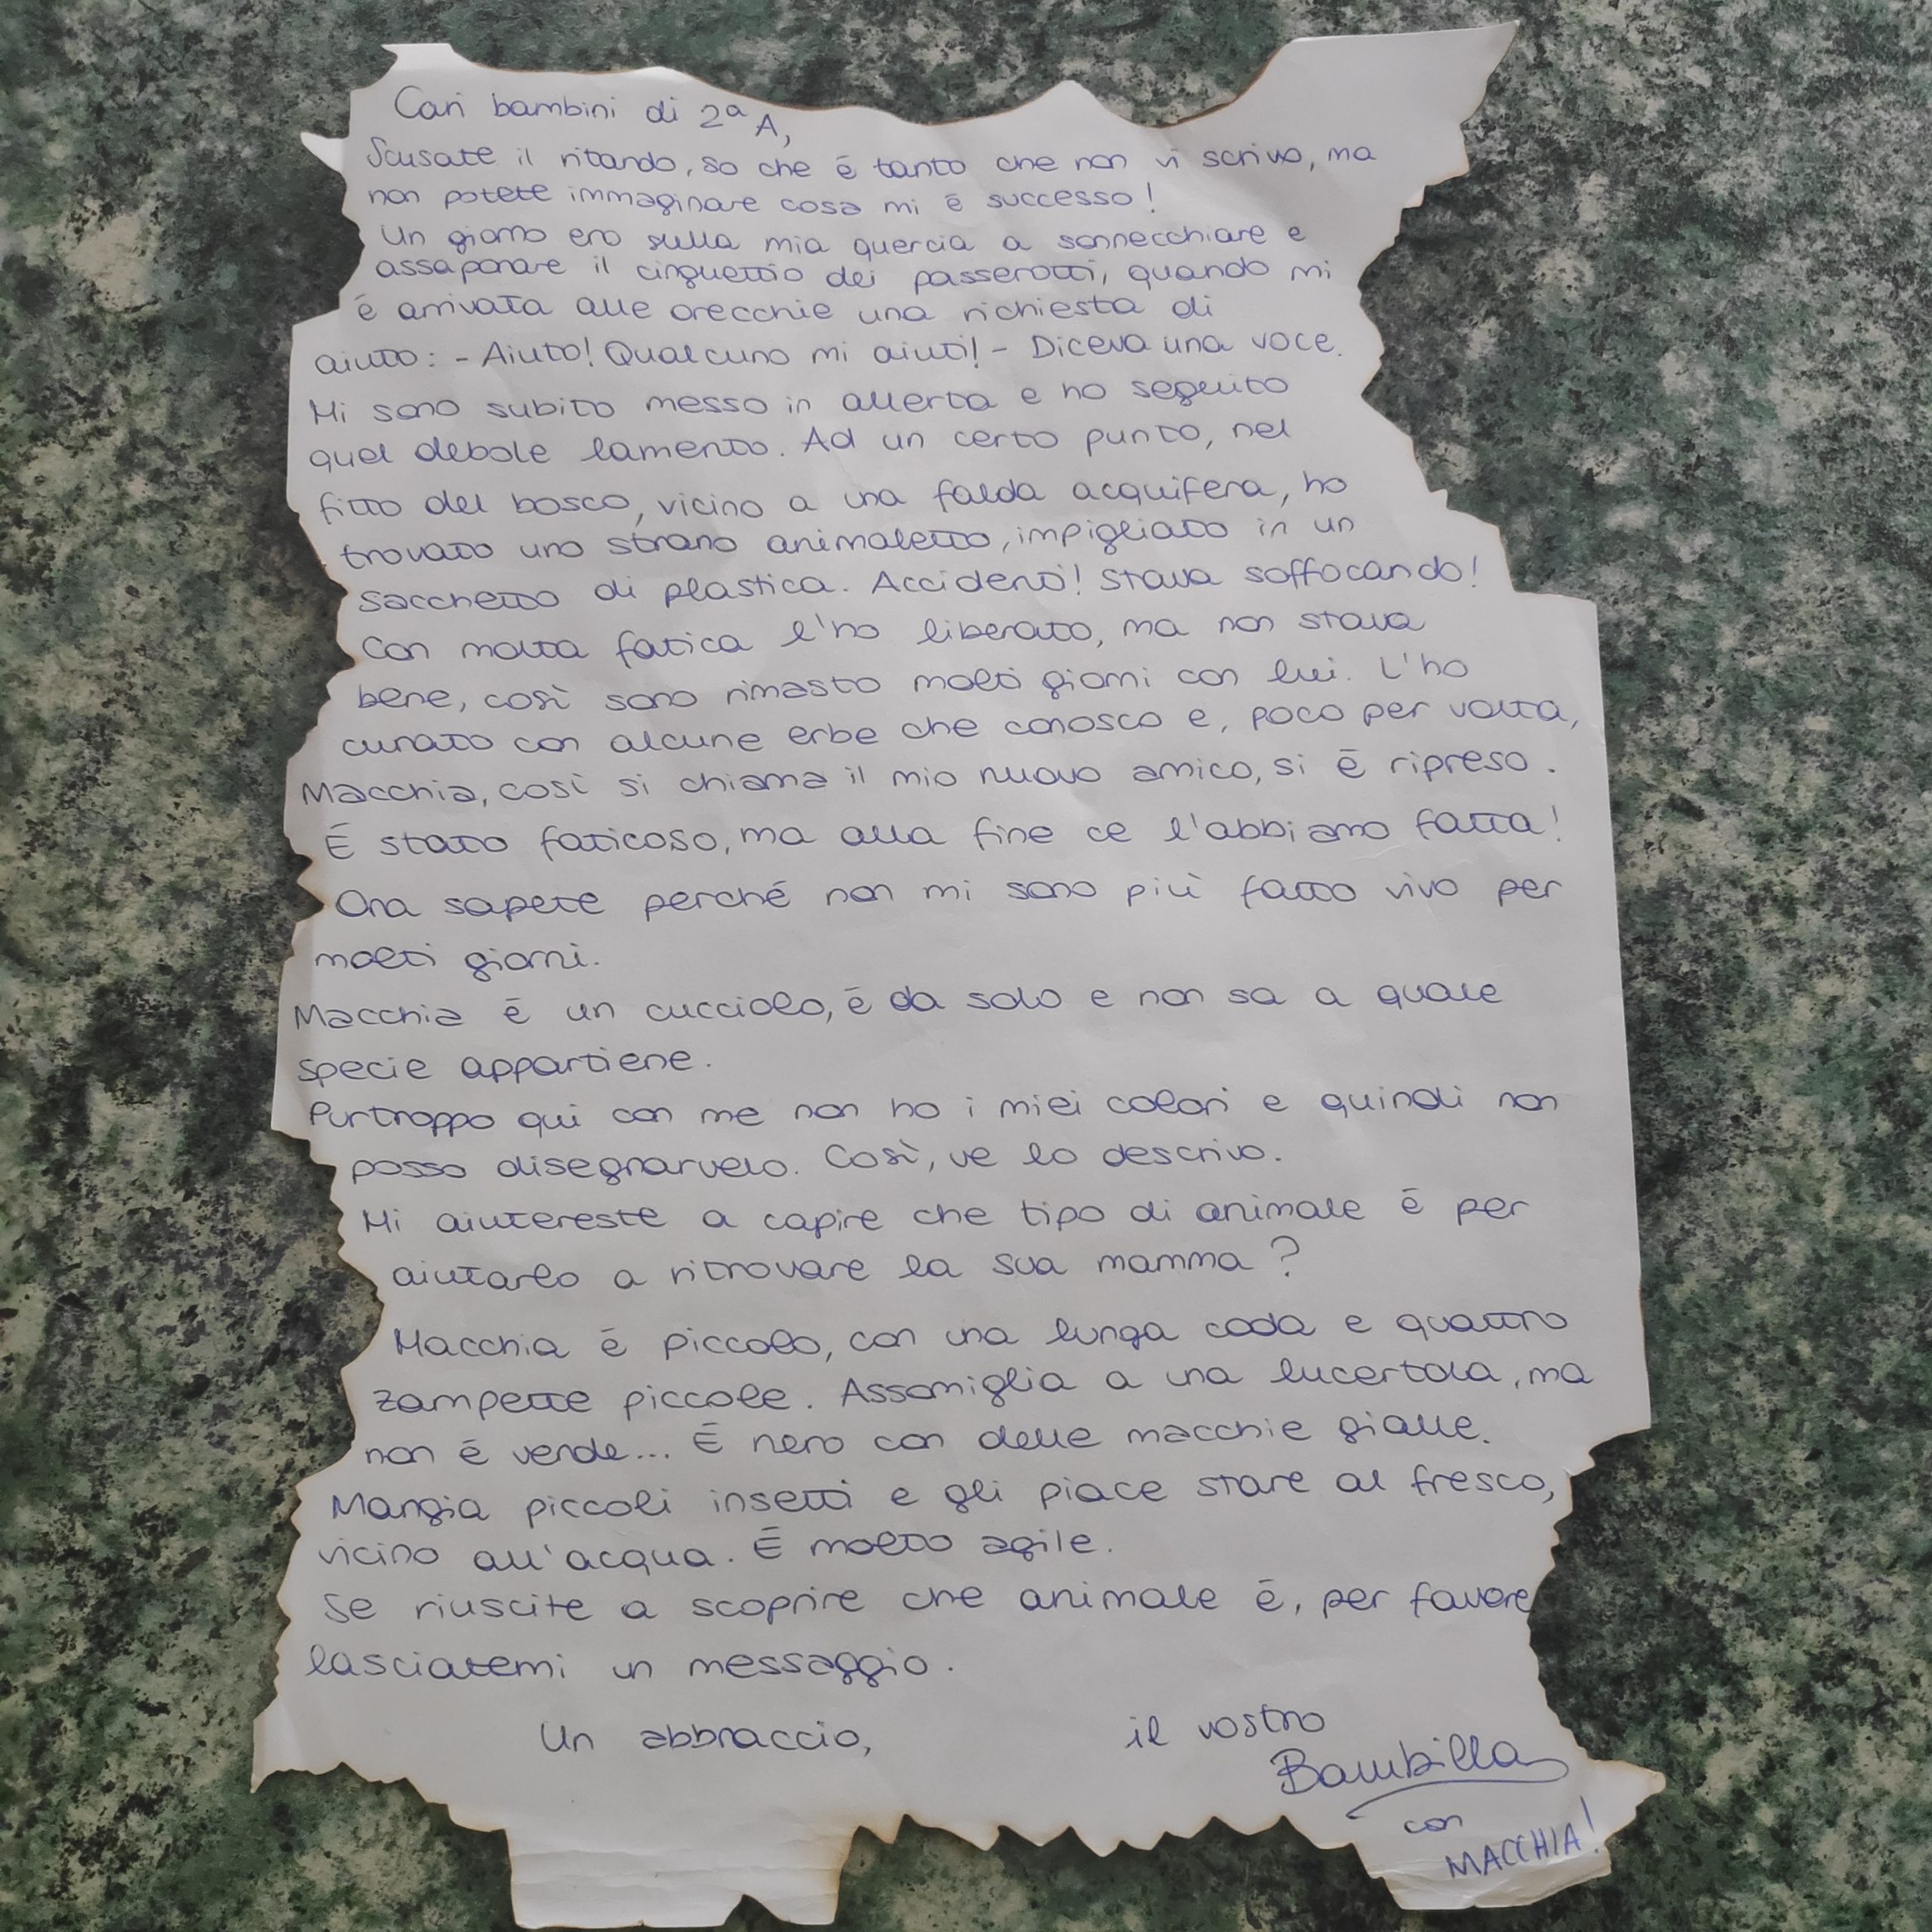 Cari bambini di 2ª A,
Scusate il ritardo, so che è tanto che non vi scrivo, ma
non potete immaginare cosa mi è successo!
Un giorno ero sulla mia quercia a sonnecchiare e
assaporare il cinguettio dei passerotti, quando mi
è arrivata alle orecchie una richiesta di
aiuto: - Aiuto! Qualcuno mi aiuti! - Diceva una voce.
Mi sono subito messo in allerta e ho seguito
quel debole lamento. Ad un certo punto, nel
fitto del bosco, vicino a una falda acquifera, ho
trovato uno strano animaletto, impigliato in un
sacchetto di plastica. Accidenti! Stava soffocando!
Con molta fatica l'ho liberato, ma non stava
bene, così sono rimasto molti giorni con lui. L'ho
curato con alcune erbe che conosco e, poco per volta,
Macchia, così si chiama il mio nuovo amico, si è ripreso.
È stato faticoso, ma alla fine ce l'abbiamo fatta!
Ora sapete perché non mi sono più fatto vivo per
molti giorni.
Macchia è un cucciolo, è da solo e non sa a quale
specie appartiene.
Purtroppo qui con me non ho i miei colori e quindi non
posso disegnarvelo. Così, ve lo descrivo.
Mi aiutereste a capire che tipo di animale è per
aiutarlo a ritrovare la sua mamma?
Macchia è piccolo, con una lunga coda e quattro
zampette piccole. Assomiglia a una lucertola, ma
non è verde... È nero con delle macchie gialle.
Mangia piccoli insetti e gli piace stare al fresco,
vicino all'acqua. È molto agile.
Se riuscite a scoprire che animale è, per favore
lasciatemi un messaggio.
Un abbraccio, il vostro
Bambilla
con
MACCHIA!